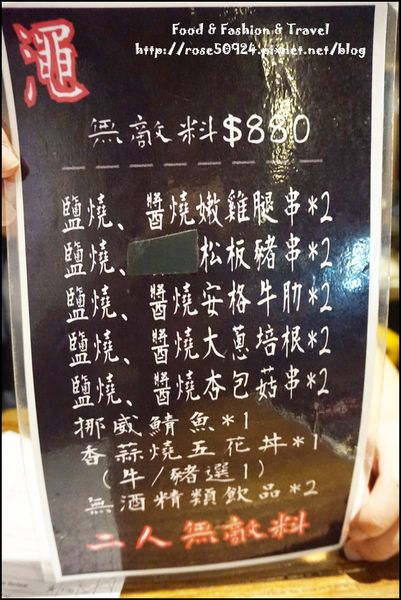 Food & Fashion & Travel
http://rose50924.pixnet.net/blog
澠
無敵料$880
鹽燒、醬燒嫩雞腿串*2
鹽燒、松板豬串*2
鹽燒、醬燒安格牛肋*2
鹽燒、醬燒大蔥培根*2
鹽燒、醬燒杏包菇串*2
挪威鯖魚*1
香蒜燒五花丼*1
(牛/豬選1)
無酒精類飲品*2
二人無敵料